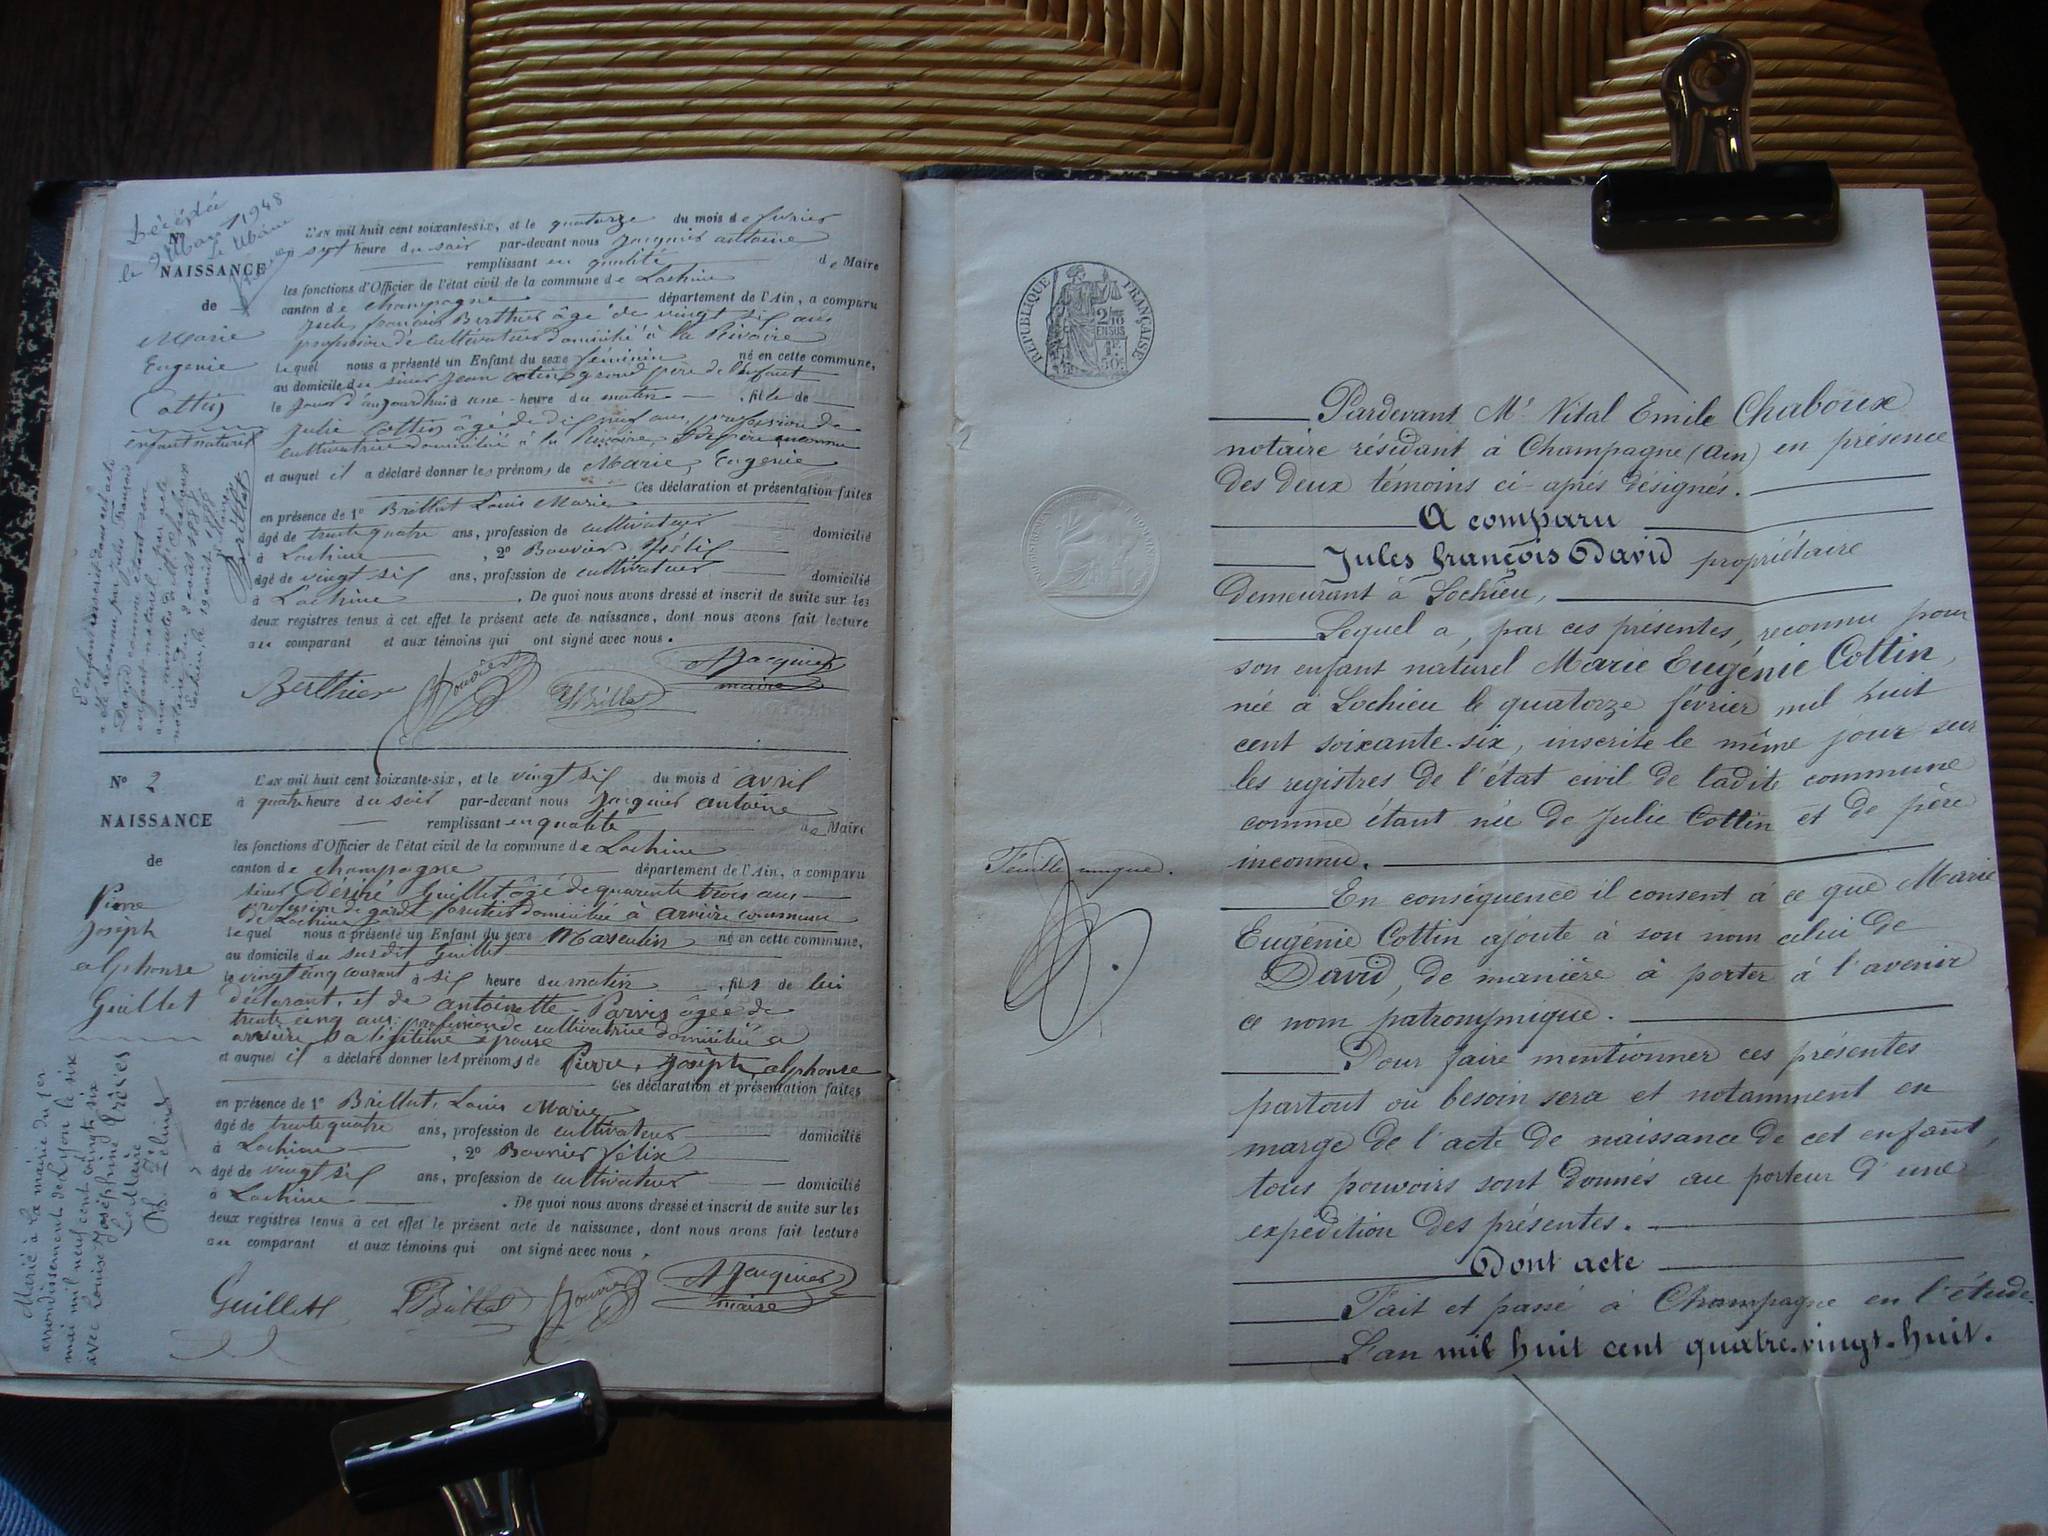 Décédée
le 9 Mars 1948
Nº
NAISSANCE
de
Marie
Eugenie
Cottin
enfant naturel
L'an mil huit cent soixante-six, et le quatorze du mois de fevrier
à sept heure du soir par-devant nous Jacquier antoine
remplissant en qualité de Maire
les fonctions d'Officier de l'état civil de la commune de Lochieu
canton de champagne département de l'Ain, a comparu
Jule françois Berthier âgé de vingt six ans
profession de cultivateur domicilié à la Rivoire
lequel nous a présenté un Enfant du sexe féminin né en cette commune,
au domicile du sieur Jean Cottin grand père de l'enfant
le jour d'aujourdhui à une heure du matin, fille de
Julie Cottin âgée de dix neuf ans, profession de
cultivatrice domiciliée à la Rivoire, & de père inconnu
et auquel il a déclaré donner les prénoms de Marie, Eugenie
Ces déclaration et présentation faites
en présence de 1º Brillat Louis Marie
âgé de trente quatre ans, profession de cultivateur domicilié
à Lochieu, 2º Bouvier Félix
âgé de vingt six ans, profession de cultivateur domicilié
à Lochieu. De quoi nous avons dressé et inscrit de suite sur les
deux registres tenus à cet effet le présent acte de naissance, dont nous avons fait lecture
au comparant et aux témoins qui ont signé avec nous.
Berthier Bouvier Brillat A Jacquier
maire
L'enfant inscrit dans cet acte
a été reconnu par Jules François
David comme étant son
enfant naturel par acte
aux minutes de Mc Chaboux
notaire du 2 août 1888
Lochieu, le 19 août 1888
Le Maire
Brillat
Nº 2
NAISSANCE
de
Pierre
Joseph
alphonse
Guillet
L'an mil huit cent soixante-six, et le vingt six du mois d'avril
à quatre heure du soir par-devant nous Jacquier antoine
remplissant en qualité de Maire
les fonctions d'Officier de l'état civil de la commune de Lochieu
canton de champagne département de l'Ain, a comparu
sieur Desiré Guillet âgé de quarante trois ans
profession de garde forestier domicilié à arvière commune
de Lochieu
lequel nous a présenté un Enfant du sexe Masculin né en cette commune,
au domicile du susdit Guillet
le vingt cinq courant à six heure du matin, fils de lui
déclarant, et de antoinette Parvis âgée de
trente cinq ans, profession de cultivatrice domiciliée a
arvière, sa légitime épouse
et auquel il a déclaré donner les prénoms de Pierre, Joseph, alphonse
Ces déclaration et présentation faites
en présence de 1º Brillat, Louis Marie
âgé de trente quatre ans, profession de cultivateur domicilié
à Lochieu, 2º Bouvier Félix
âgé de vingt six ans, profession de cultivateur domicilié
à Lochieu. De quoi nous avons dressé et inscrit de suite sur les
deux registres tenus à cet effet le présent acte de naissance, dont nous avons fait lecture
au comparant et aux témoins qui ont signé avec nous.
Guillet Brillat Bouvier A Jacquier
maire
Marié à la mairie du 1er
arrondissement de Lyon le six
mai mil neuf cent vingt six
avec Louise Joséphine Grèves
Le Maire
RÉPUBLIQUE FRANÇAISE
2/10
EN SUS
1F
50c
Pardevant Me Vital Emile Chaboux
notaire résidant à Champagne (Ain) en présence
des deux témoins ci-après désignés.
A comparu
Jules François David propriétaire
demeurant à Lochieu,
Lequel a, par ces présentes, reconnu pour
son enfant naturel Marie Eugénie Cottin,
née à Lochieu le quatorze février mil huit
cent soixante-six, inscrite le même jour sur
les registres de l'état civil de ladite commune
comme étant née de Julie Cottin et de père
inconnu.
Feuille unique.
En conséquence il consent à ce que Marie
Eugénie Cottin ajoute à son nom celui de
David, de manière à porter à l'avenir
ce nom patronymique.
Pour faire mentionner ces présentes
partout où besoin sera et notamment en
marge de l'acte de naissance de cet enfant,
tous pouvoirs sont donnés au porteur d'une
expédition des présentes.
Dont acte
Fait et passé à Champagne en l'étude.
L'an mil huit cent quatre-vingt-huit.